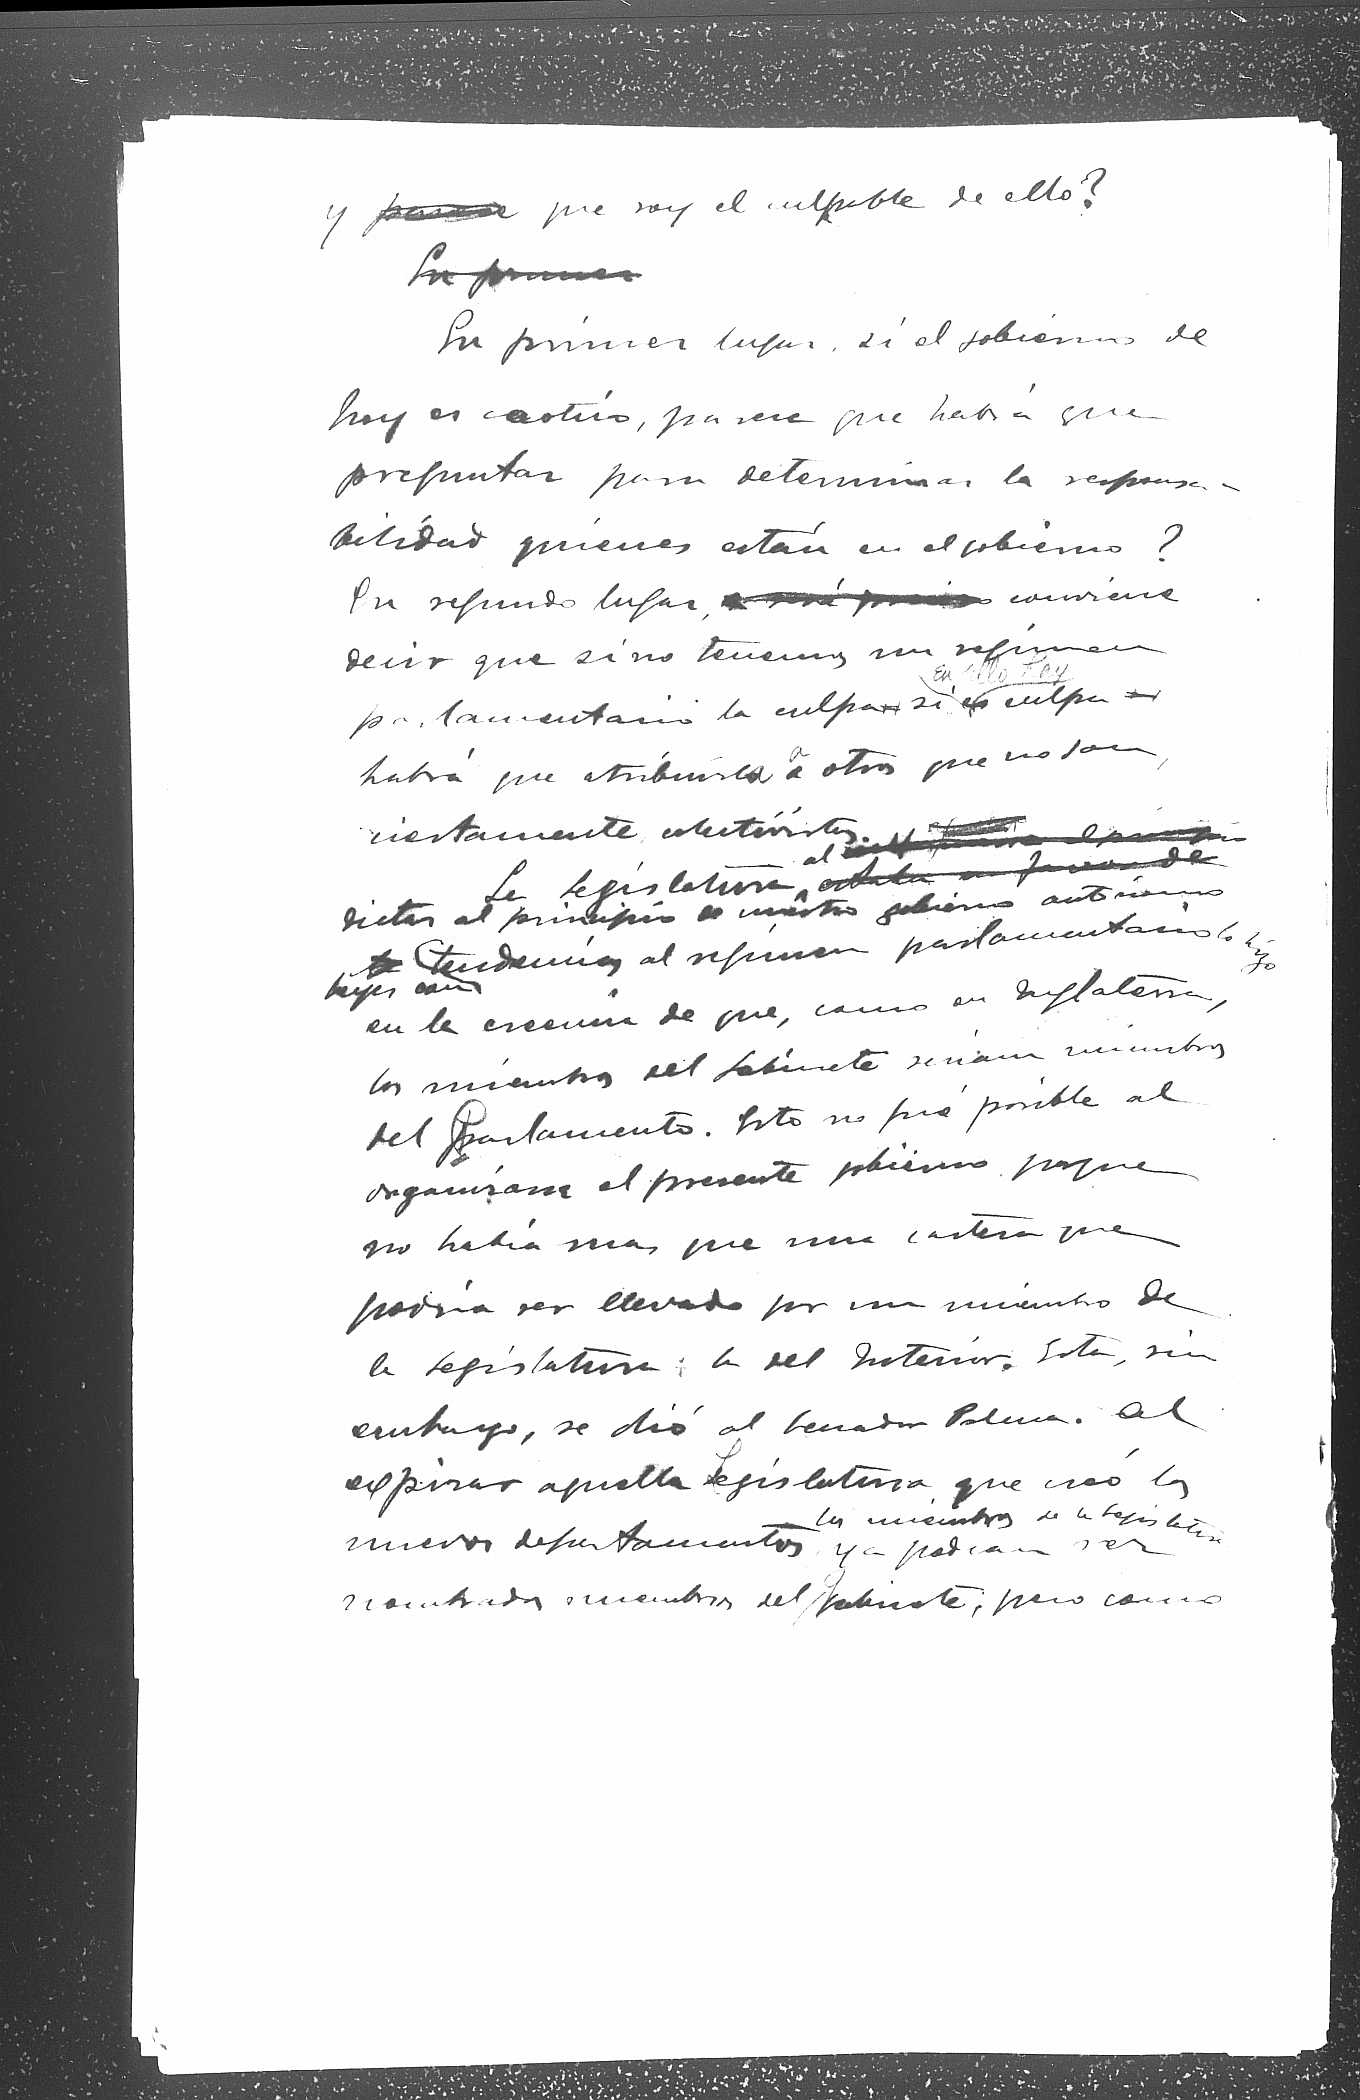 y parece que soy el culpable de ello?
En primer
En primer lugar, si el gobierno de
hoy es caótico, parece que habrá que
preguntar para determinar la responsa-
bilidad quienes están en el gobierno?
En segundo lugar, será preciso conviene
decir que si no tenemos un régimen
en ello hay
parlamentario la culpa si es culpa
habrá que atribuirla a otros que no son,
ciertamente, colectivistas.
La Legislatura, al estaba en favor de
dictar al principio de nuestro gobierno autónomo
leyes con tendencias al régimen parlamentario lo hizo
en la creencia de que, como en Inglaterra,
los miembros del Gabinete serían miembros
del Parlamento. Esto no fué posible al
organizarse el presente gobierno porque
no había mas que una cartera que
podría ser llevada por un miembro de
la Legislatura: la del Interior. Esta, sin
embargo, se dió al Senador Palma. Al
expirar aquella Legislatura que creó los
los miembros de la Legislatura
nuevos departamentos ya podían ser
nombrados miembros del Gabinete, pero como